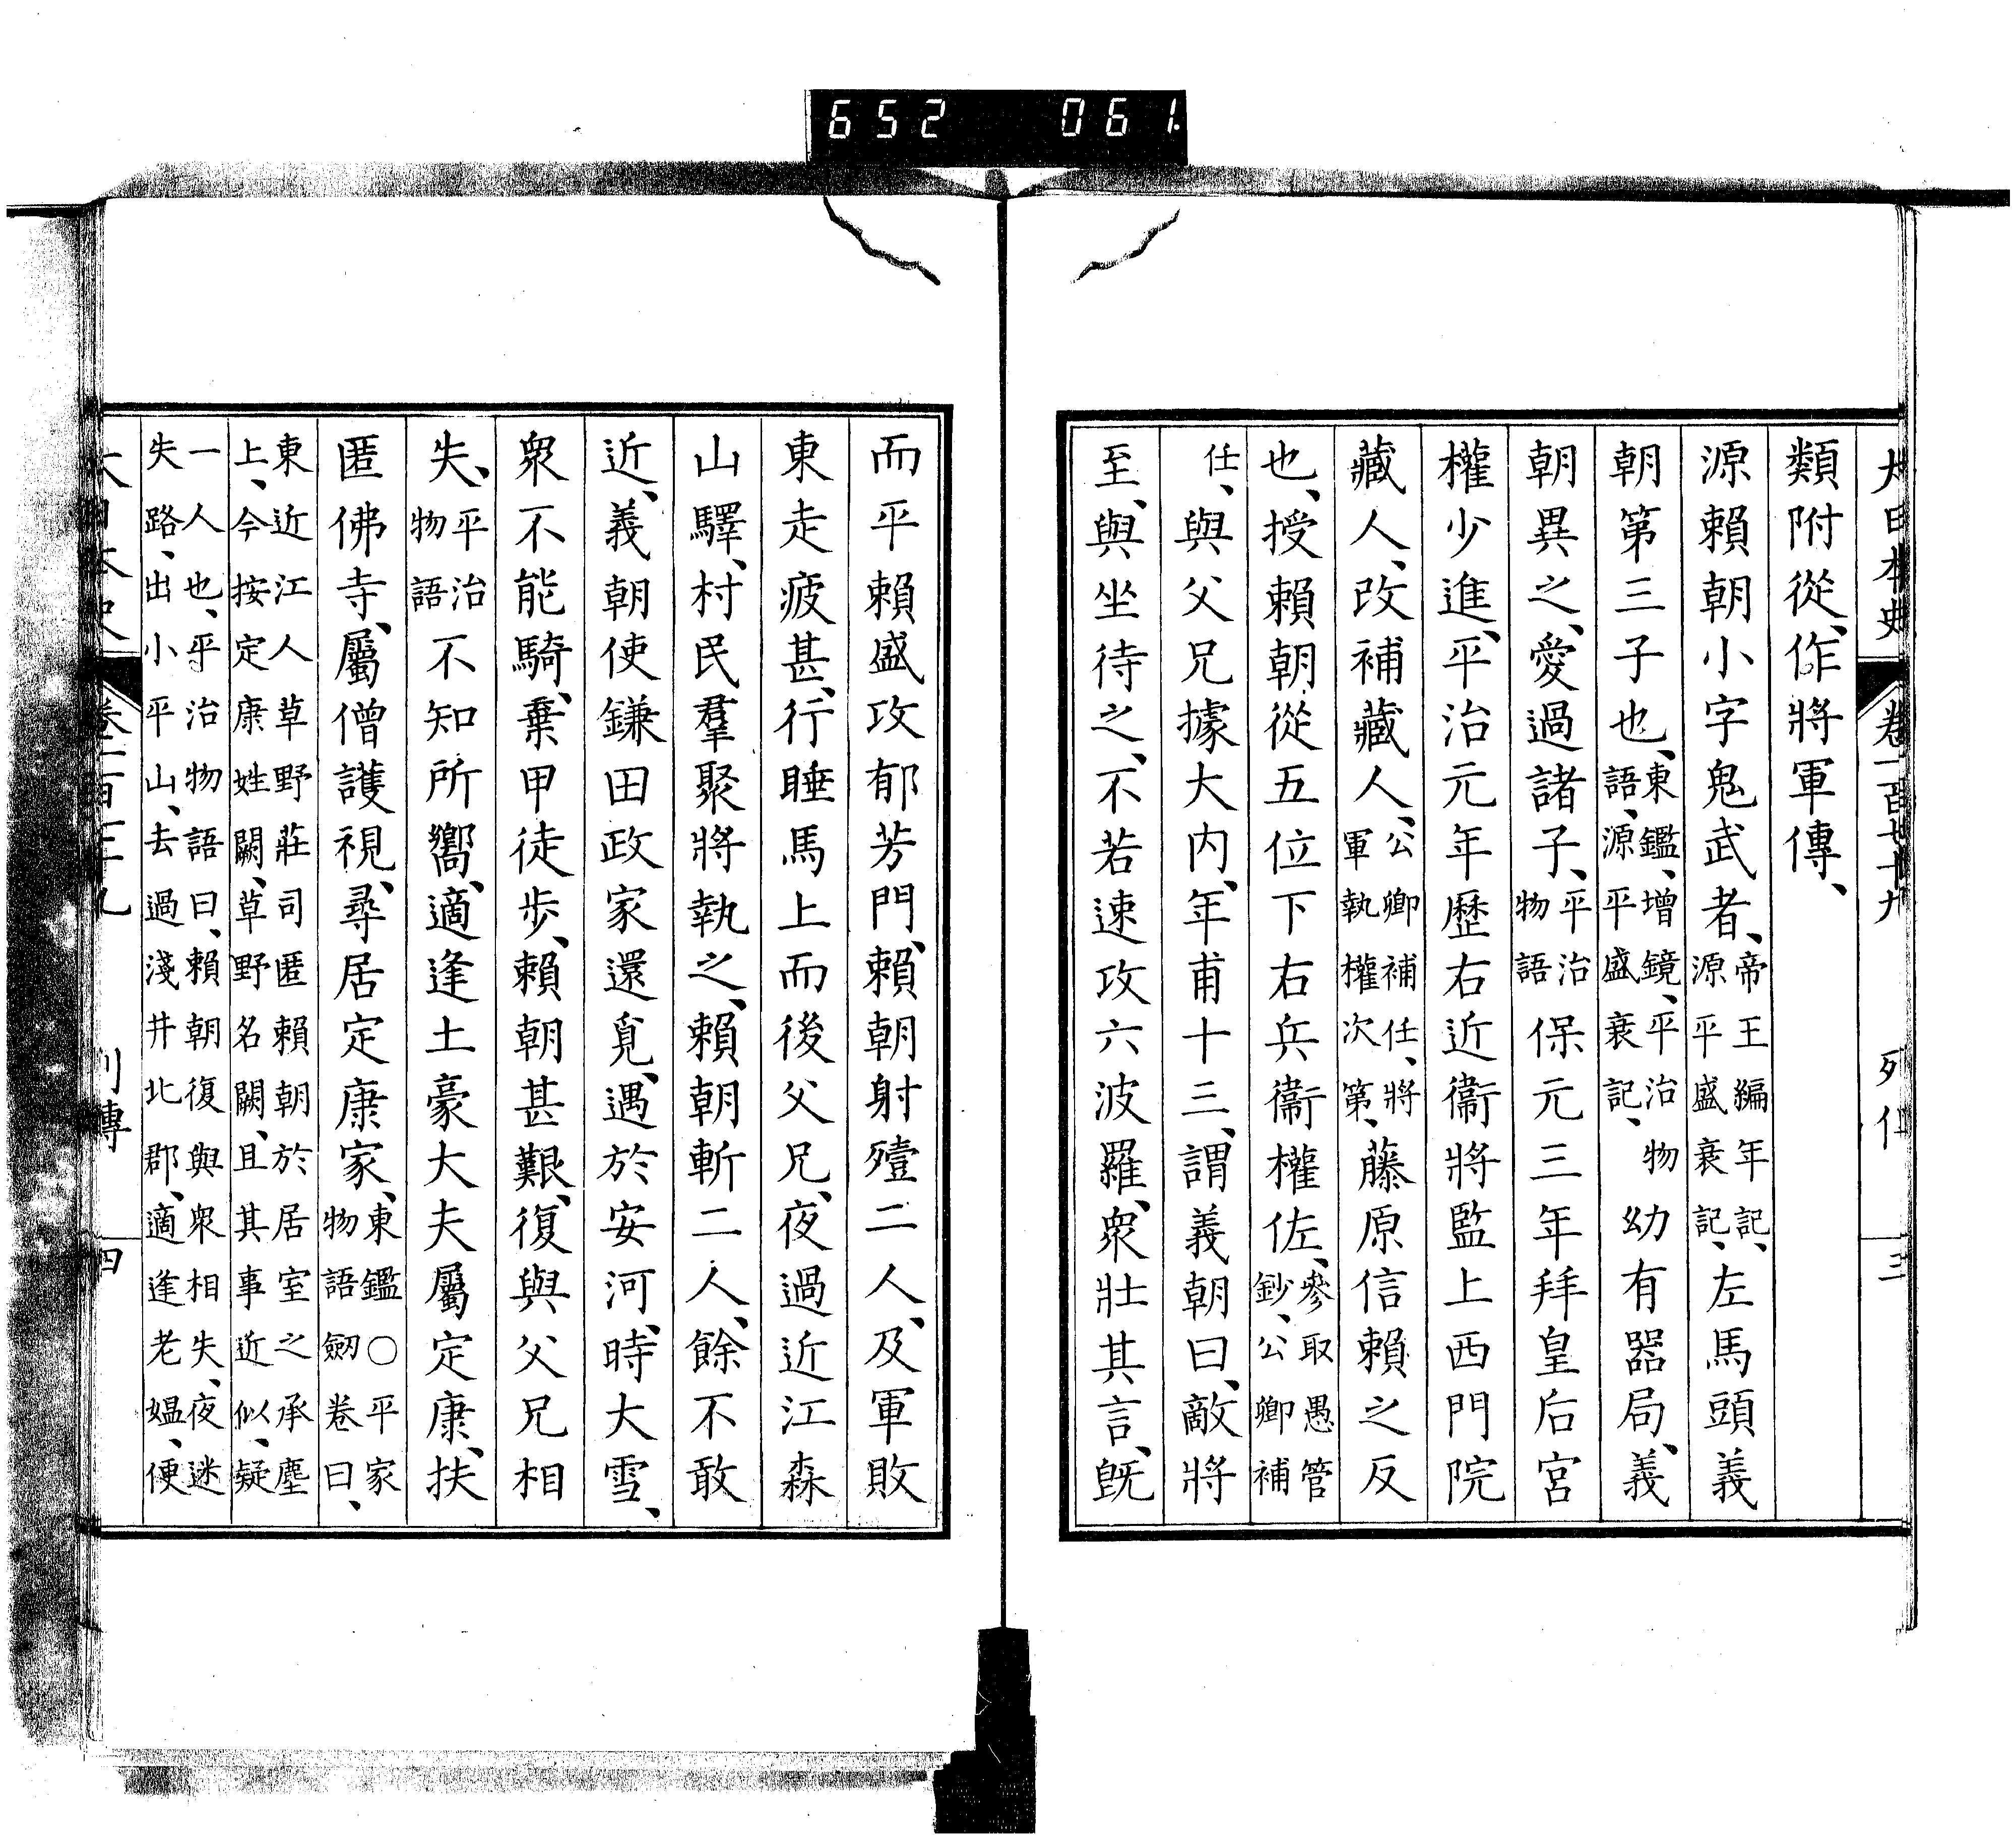 652 061
大日本史 卷一百七十九 列傳 三
類附從、作將軍傳、
源賴朝小字鬼武者、帝王編年記、源平盛衰記、左馬頭義
朝第三子也、東鑑、增鏡、平治物語、源平盛衰記、幼有器局、義
朝異之、愛過諸子、平治物語保元三年拜皇后宮
權少進、平治元年歷右近衞將監上西門院
藏人、改補藏人、公卿補任、將軍執權次第、藤原信賴之反
也、授賴朝從五位下右兵衞權佐、參取愚管鈔、公卿補
任、與父兄據大內、年甫十三、謂義朝曰、敵將
至、與坐待之、不若速攻六波羅、眾壯其言、旣
而平賴盛攻郁芳門、賴朝射殪二人、及軍敗
東走疲甚、行睡馬上而後父兄、夜過近江森
山驛、村民羣聚將執之、賴朝斬二人、餘不敢
近、義朝使鎌田政家還覓、遇於安河、時大雪、
眾不能騎、棄甲徒步、賴朝甚艱、復與父兄相
失、平治物語不知所嚮、適逢土豪大夫屬定康、扶
匿佛寺、屬僧護視、尋居定康家、東鑑○平家物語劔卷曰、
東近江人草野莊司匿賴朝於居室之承塵
上、今按定康姓闕、草野名闕、且其事近似、疑
一人也、平治物語曰、賴朝復與眾相失、夜迷
失路、出小平山、去過淺井北郡、適逢老媼、便
大日本史 卷一百七十九 列傳 四